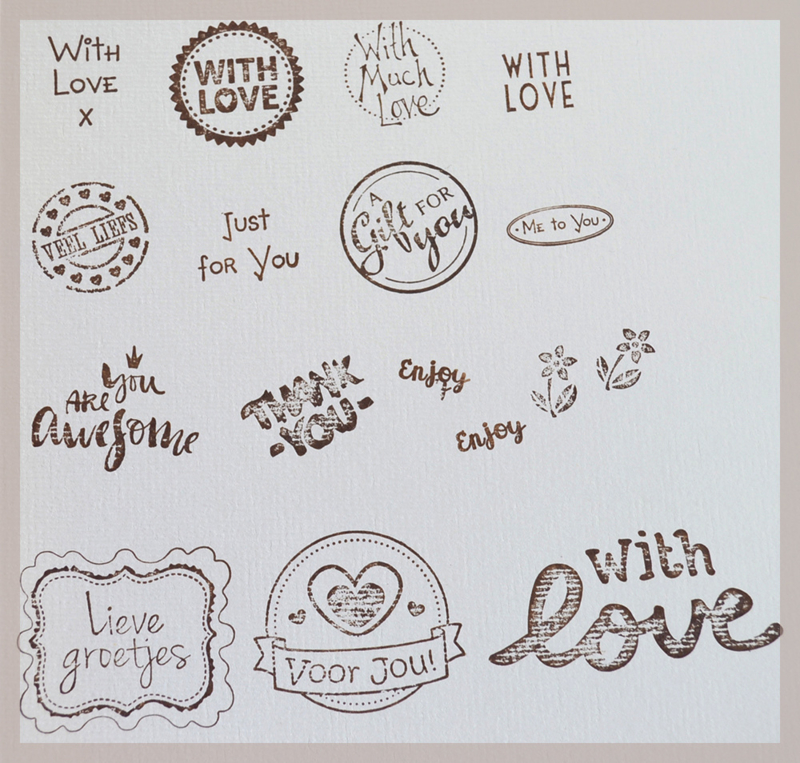 With
Love
x
WITH
LOVE
With
Much
Love
WITH
LOVE
VEEL LIEFS
Just
for You
A
Gift FOR
you
• Me to You •
You
Are
Awesome
THANK
-YOU-
Enjoy
Enjoy
Lieve
groetjes
Voor Jou!
with
love